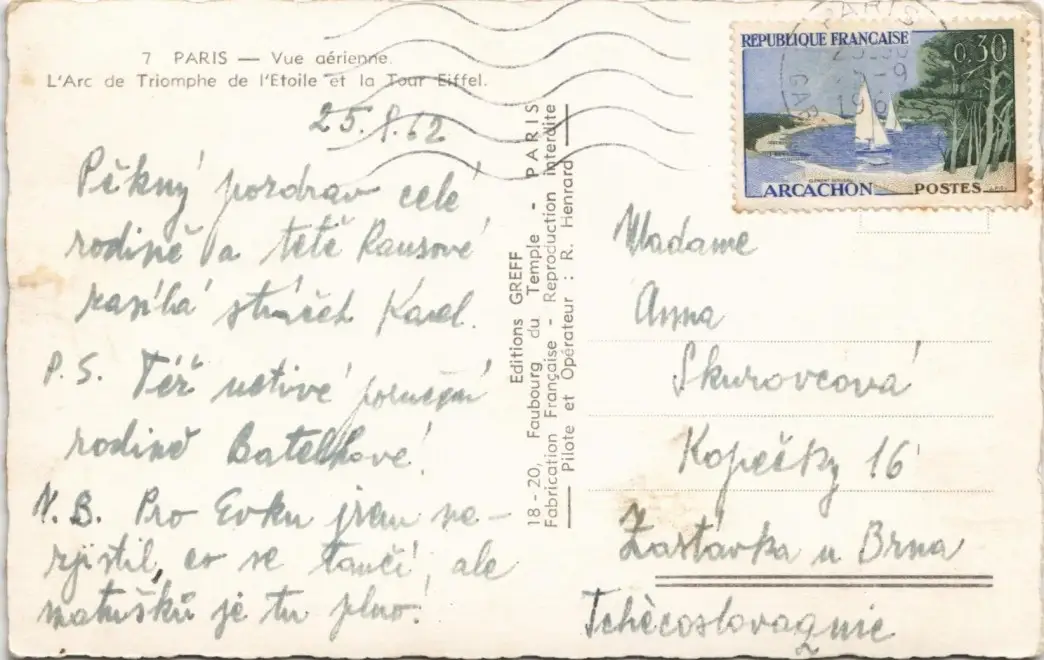 7 PARIS — Vue aérienne.
L'Arc de Triomphe de l'Etoile et la Tour Eiffel.
25.8.62
Pěkný pozdrav celé
rodině a tetě Rausové
zasílá strýček Karel.
P.S. Též uctivé poručení
rodině Batelkové!
N.B. Pro Evku jsem ne-
zjistil, co se tančí, ale
matušků je tu plno!
Editions GREFF
18-20, Faubourg du Temple - PARIS
Fabrication Française - Reproduction interdite
Pilote et Opérateur : R. Henrard
REPUBLIQUE FRANÇAISE
0,30
ARCACHON POSTES
PARIS
GAR
Madame
Anna
Skurovcová
Kopečky 16
Zastávka u Brna
Tchècoslovaquie